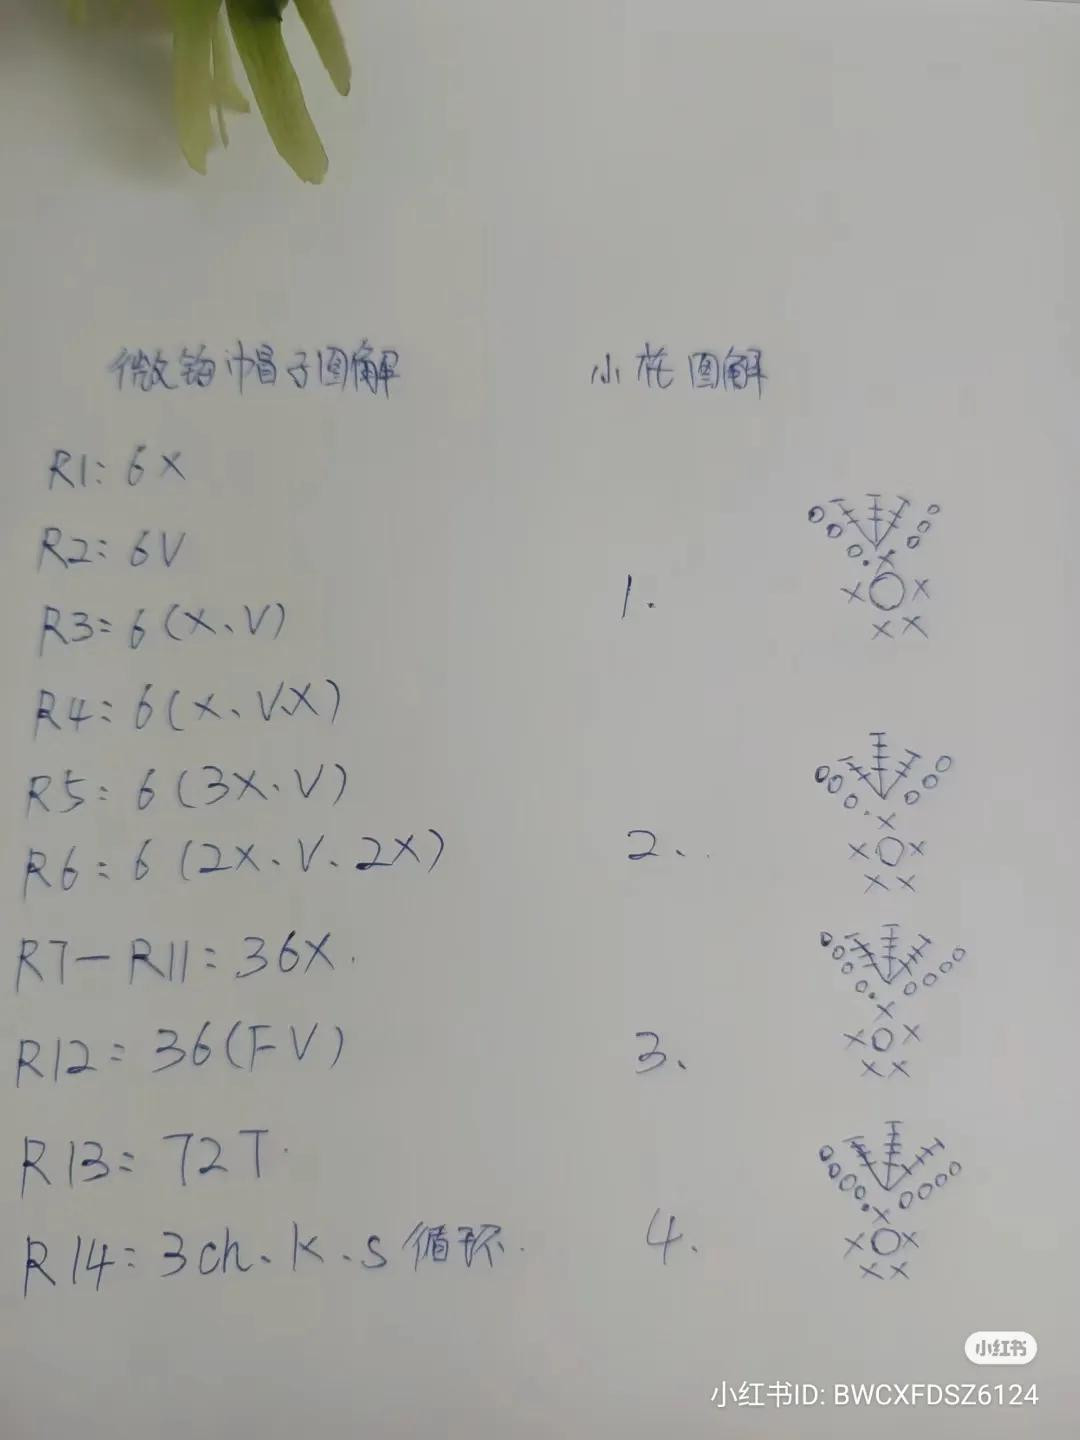 微钩帽子图解
R1: 6X
R2: 6V
R3: 6(X、V)
R4: 6(X、V、X)
R5: 6(3X、V)
R6: 6(2X、V、2X)
R7—R11: 36X.
R12: 36(FV)
R13: 72T.
R14: 3ch、K、S循环.
小花图解
1.
2、
3、
4.
小红书
小红书ID: BWCXFDSZ6124